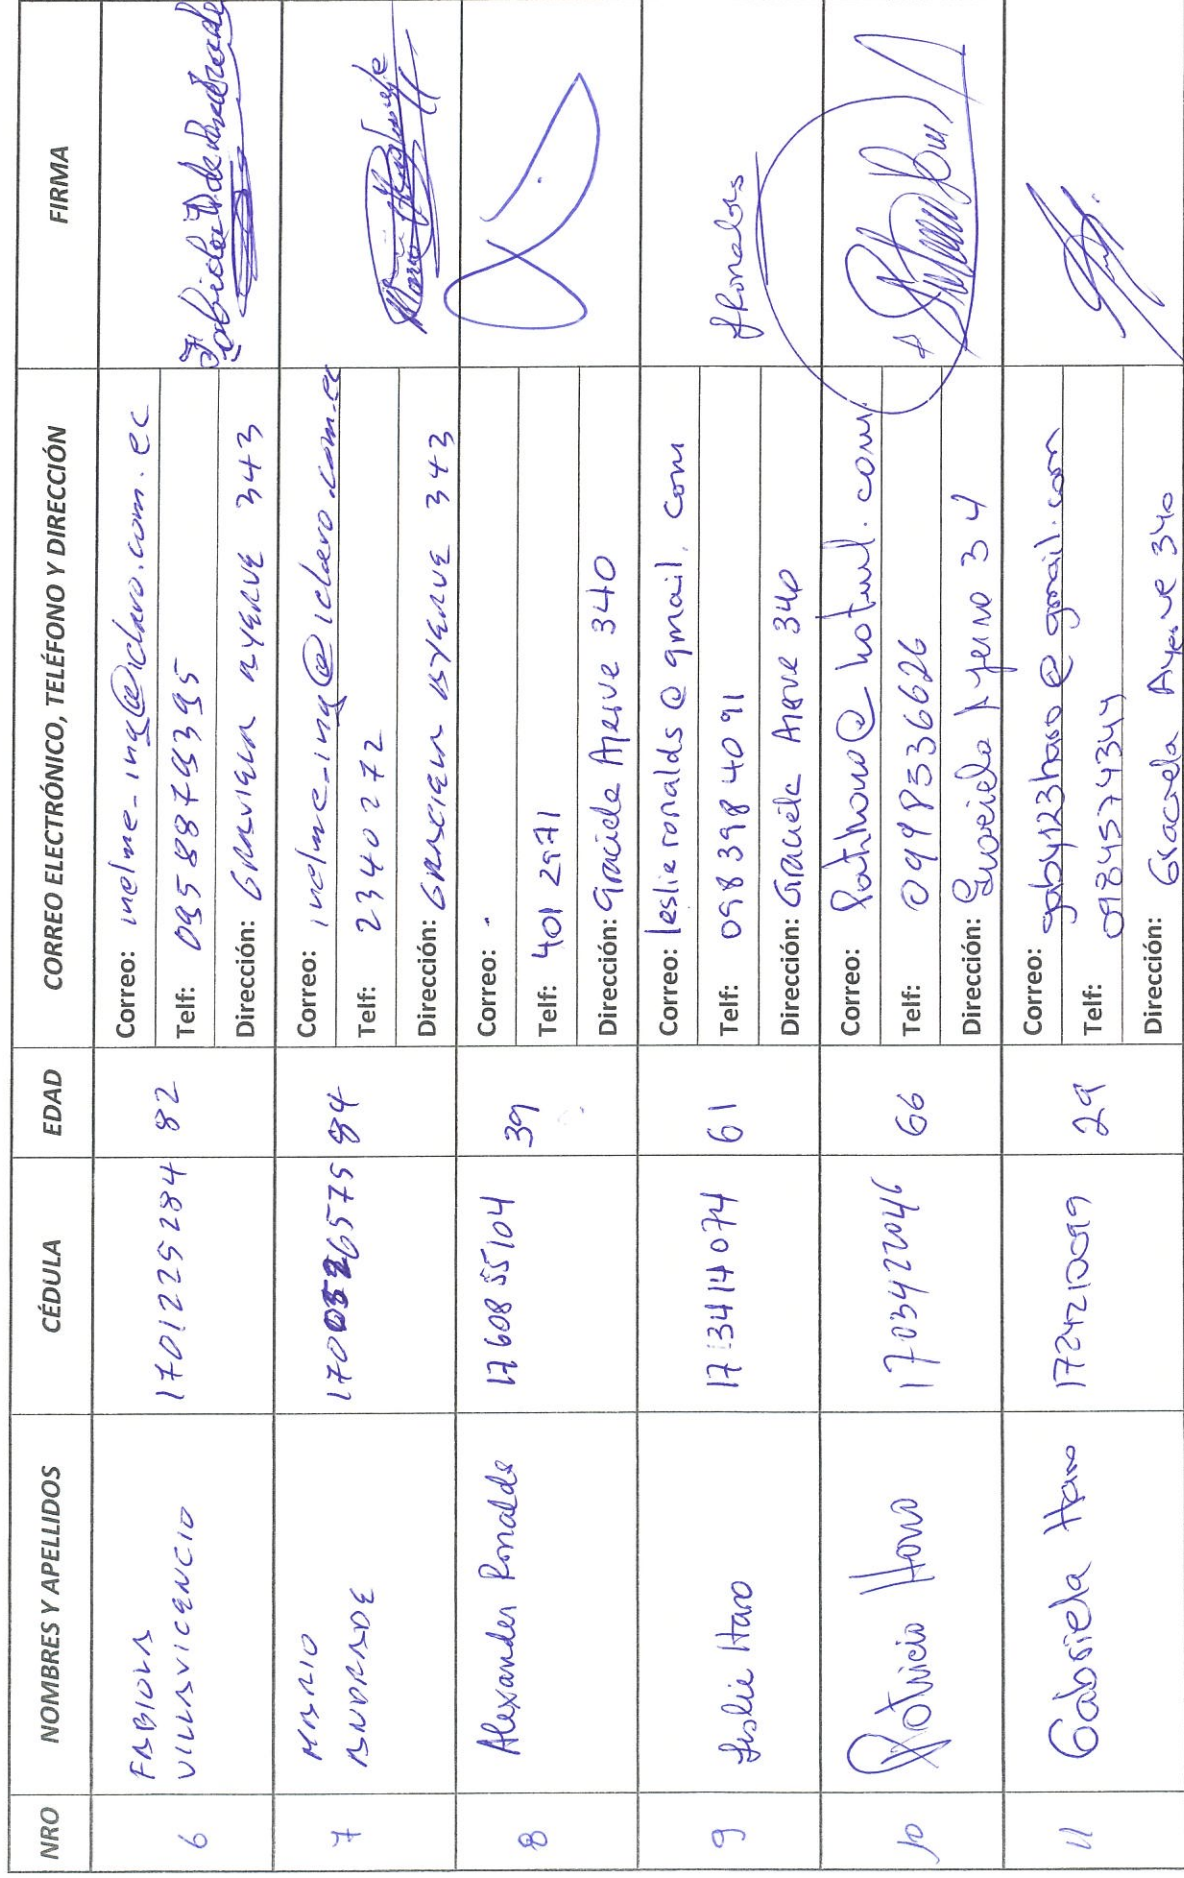 NRO NOMBRES Y APELLIDOS CÉDULA EDAD CORREO ELECTRÓNICO, TELÉFONO Y DIRECCIÓN FIRMA
6 FABIOLA VILLAVICENCIO 1701225284 82
Correo: inelme-ing@iclaro.com.ec
Telf: 0958879395
Dirección: GRAVIELA AYERVE 343
7 MARIO ANDRADE 1700526575 84
Correo: inelme-ing@iclaro.com.ec
Telf: 2340272
Dirección: GRACIELA AYERVE 343
8 Alexander Ronalds 1760855104 39
Correo: .
Telf: 401 2971
Dirección: Graciela Ayerve 340
9 Leslie Haro 1713414074 61
Correo: leslieronalds@gmail.com
Telf: 098 398 4091
Dirección: Graciela Ayerve 340
LRonalds
10 Patricio Haro 1703422046 66
Correo: @hotmail.com
Telf: 0998336626
Dirección: Graciela Ayerve 34
11 Gabriela Haro 1724210099 29
Correo: gaby123haro@gmail.com
Telf: 0984574344
Dirección: Graciela Ayerve 340